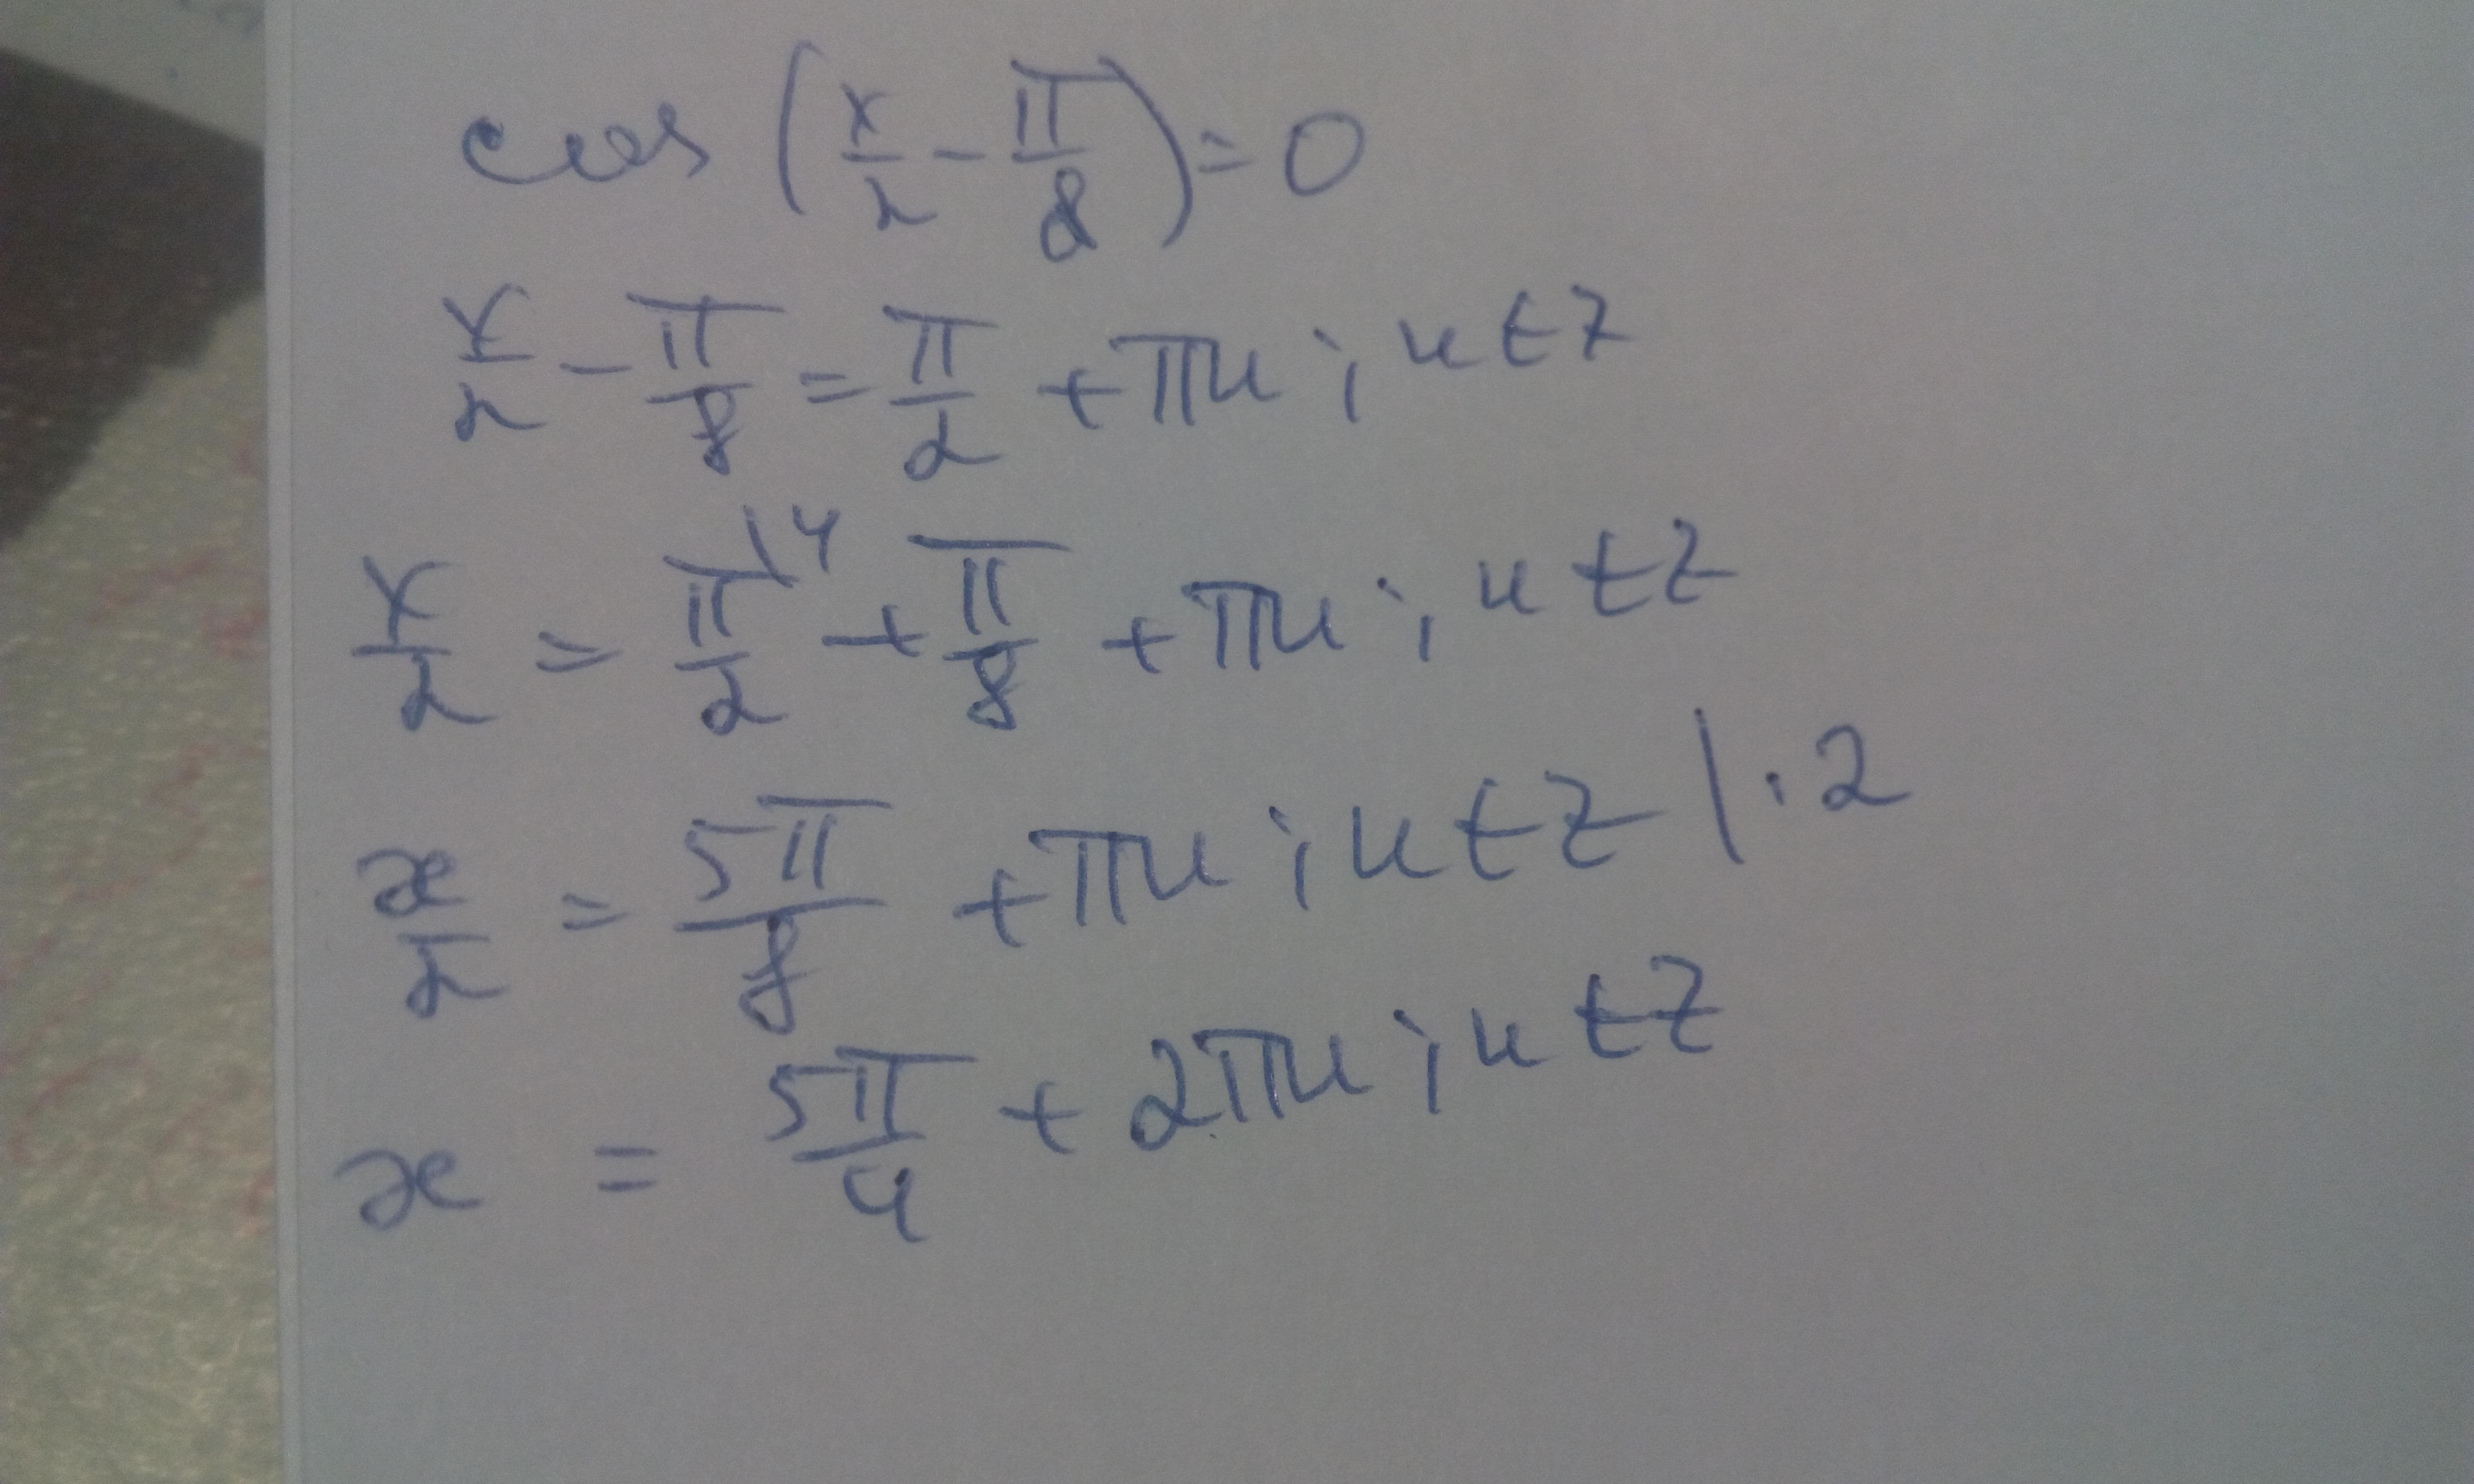 cos (x/2 - π/8) = 0
x/2 - π/8 = π/2 + πn ; n ∈ Z
x/2 = π/2 \4 + π/8 + πn ; n ∈ Z
x/2 = 5π/8 + πn ; n ∈ Z | · 2
x = 5π/4 + 2πn ; n ∈ Z